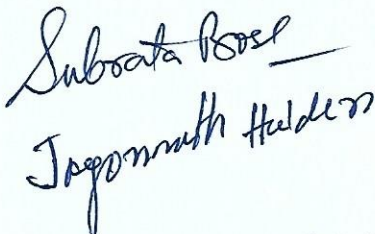 Subrata Bose
Jagonnath Halder